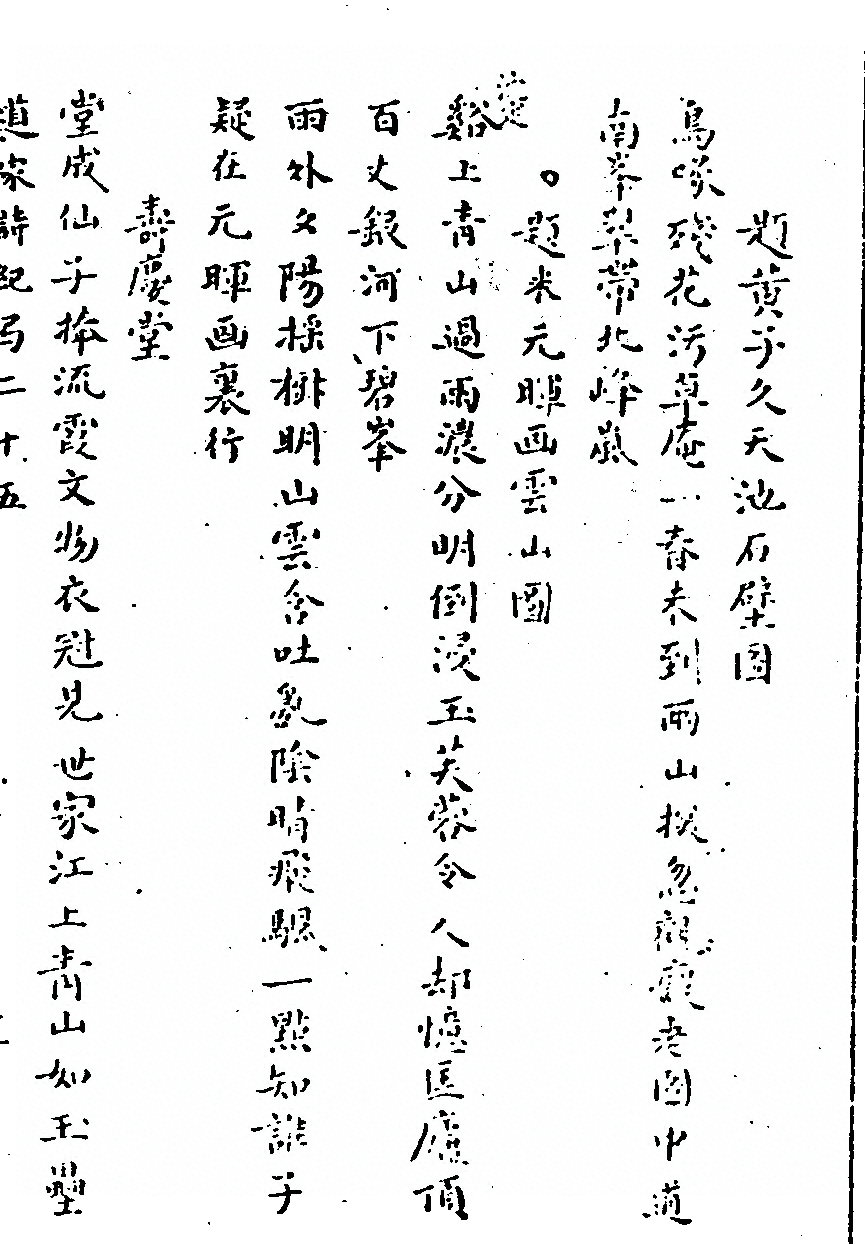 題黄子久天池石壁圖
鳥啄殘花污草庵一春未到兩山探忽觀癡老圖中道
南峯翠帶北峰嵐
題米元暉画雲山圖
谿上青山過雨濃分明倒浸玉芙蓉令人却憶匡廬頂
百丈銀河下碧峯
雨外夕陽採樹明山雲含吐亂陰晴飛颿一點知誰子
疑在元暉画裏行
壽慶堂
堂成仙子捧流霞文物衣冠見世家江上青山如玉壘
道家詩紀弓二十五